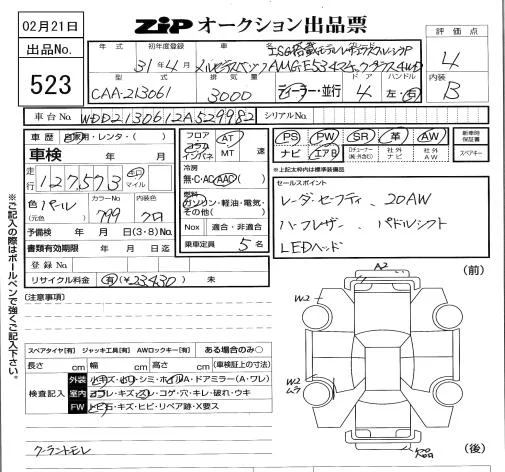 02月21日
ZIP オークション出品票
出品No.
523
年式 初年度登録 車 グレード
31年4月
AMG E53 4マチックプラス4WD
型式 排気量 ドア ハンドル
CAA-213061 3000 ディーラー・並行 4 左・右
評価点
4
内装
B
車台No. WDD2130612A529982 シリアルNo.
車歴 自家用・レンタ・( )
車検 年 月
走行 127,573 km マイル
色(元色) パール カラーNo. 799 内装色 クロ
予備検 年 月 日(3・8)No.
書類有効期限 年 月 日迄
登録No.
リサイクル料金 有(¥23430) 未
フロア コラム インパネ AT MT 速
冷房 無・C・AC・AAC( )
燃料 ガソリン・軽油・電気・その他( )
Nox 適合・非適合
乗車定員 5名
PS PW SR 革 AW 新車時保証書
ナビ エアB 社外ナビ 社外AW スペアキー
※上記太枠内は標準装備品
セールスポイント
レーダーセーフティ、20AW
ハーフレザー、パドルシフト
LEDヘッド
※ご記入の際はボールペンで強くご記入下さい。
(注意事項)
スペアタイヤ[有] ジャッキ工具[有] AWロックキー[有] ある場合のみ○
長さ cm 幅 cm 高さ cm (車検証上の寸法)
検査記入
外装 小キズ・凹・シミ・ホイル・ドアミラー(A・ワレ)
室内 ヨゴレ・キズ・スレ・コゲ・穴・キレ・破れ・ウキ
FW トビ石・キズ・ヒビ・リペア跡・X要ス
クーラントモレ
A2
(前)
W2
W2
ムラ
(後)